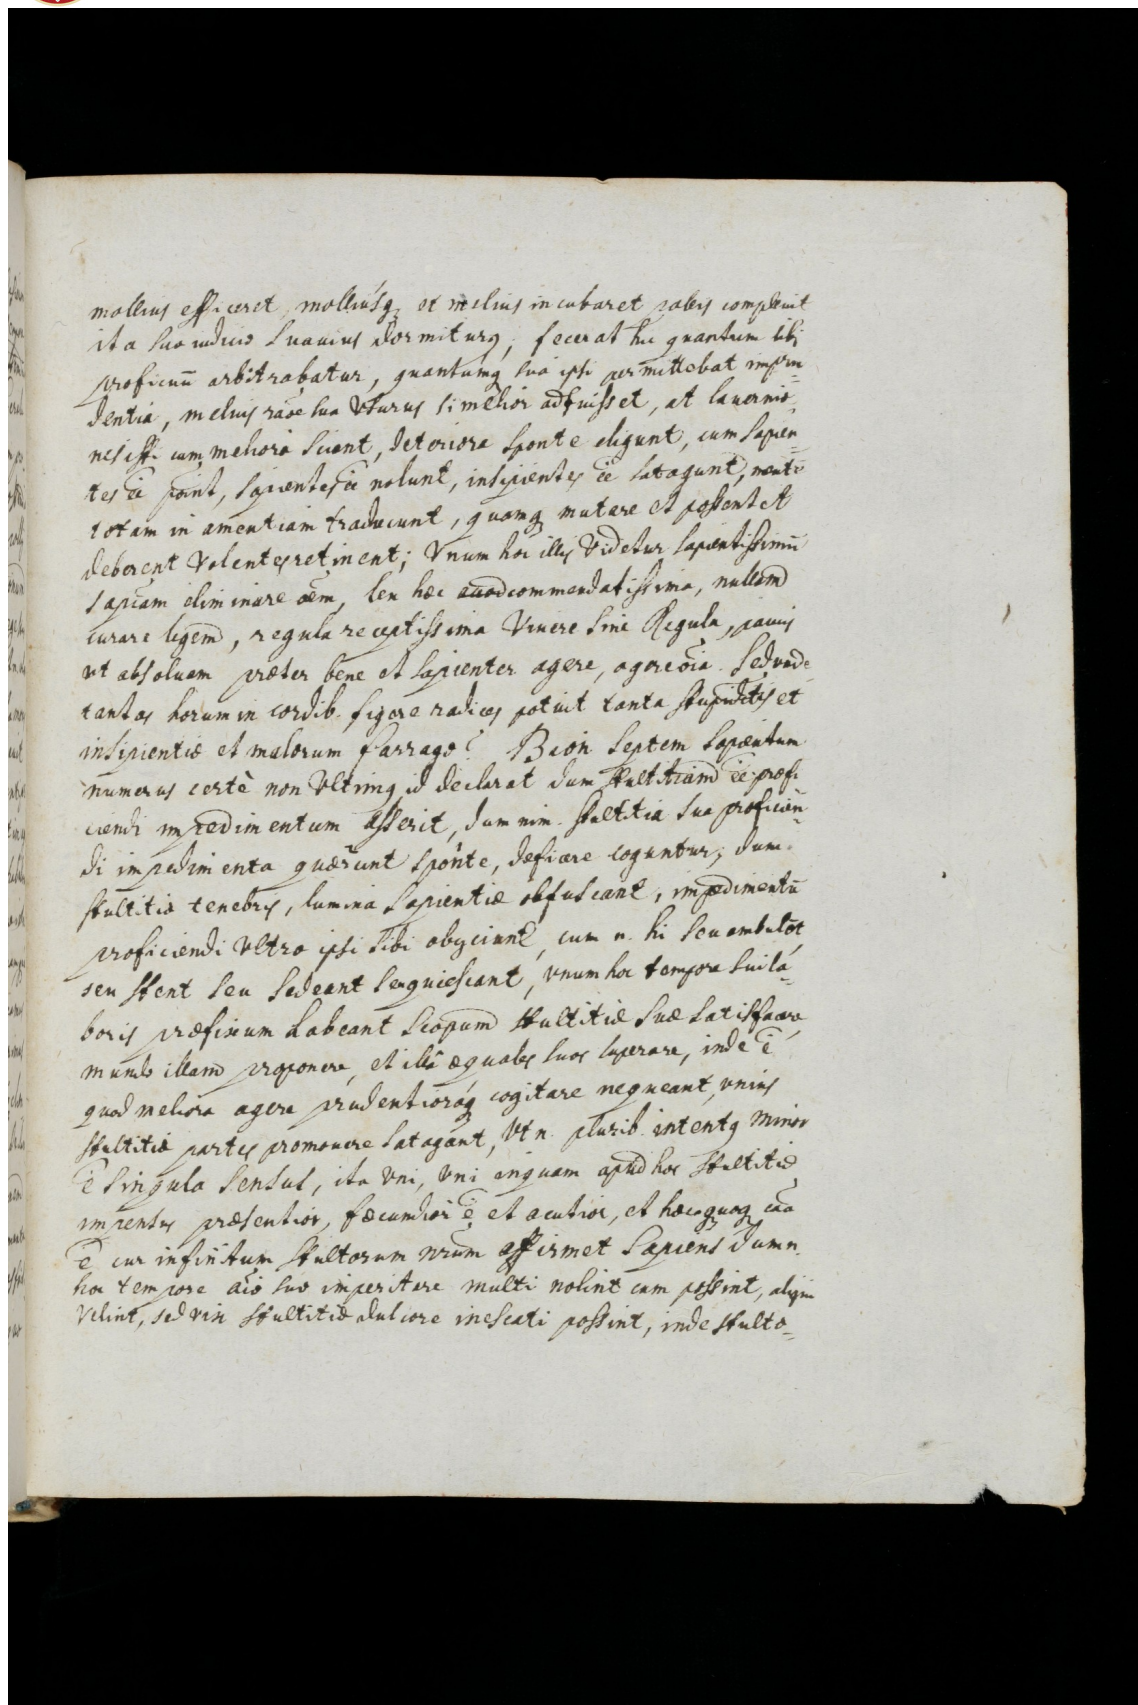 mollius efficeret, molliusq et melius incubaret paleis compleuit
ita suo iudicio suauius dormiturq; fecerat hic quantum sibi
proficuū arbitrabatur, quantumq sua ipsi permittebat impru=
dentia, melius rãõe sua vsurus si melior adfuisset, at
nes isti cum meliora sciant, deteriora sponte eligunt, cum sapien=
tes ẽẽ põint, sapientes ẽẽ nolunt, insipientes ẽẽ satagunt, mentẽ
totam in amentiam traducunt, quamq mutare et possent et
deberent volentes retinent; Vnum hoc illis videtur sapientissimũ
sapiãm eliminare oẽm, lex hæc commendatissima, nullam
curare legem, regula receptissima viuere sine Regula, paucis
vt absoluam præter bene et sapienter agere, agere oĩa. Sed unde
tantas horum in cordib. figere radices potuit tanta stupiditatis et
insipientiæ et malorum farrago? Bion septem sapientum
numerus certè non vltimq id declarat dum stultitiam ẽẽ profi
ciendi impedimentum asserit, dum nim. stultitia sua proficien=
di impedimenta quærunt spontè, deficere coguntur; dum
stultitiæ tenebris, lumina sapientiæ obfuscant, impedimentũ
proficiendi vltro ipsi sibi obyciunt, cum n. hi seu ambulẽt,
seu stent seu sedeant seu quiescant, vnum hoc tempora sui la=
boris præfixum habeant scopum stultitiæ suæ satisfacere
mundo illam proponere, et illâ æquales suos superare, inde ẽ
quod meliora agere prudentioraq cogitare nequeant, vnius
stultitiæ partes promouere satagant, Vt n. plurib. intentq minor
ẽ singula sensus, ita vni, vni inquam apud hos stultitiæ
impensus præsentior, fæcundior ẽ et acutior, et hæc quoq cãã
ẽ cur infinitum stultorum nrũm affirmet Sapiens dum n.
hoc tempore aĩo suo imperitare multi nolint cum possint, aliqui
velint, sed vix stultitiæ dulcore inescati possint, inde stulto=